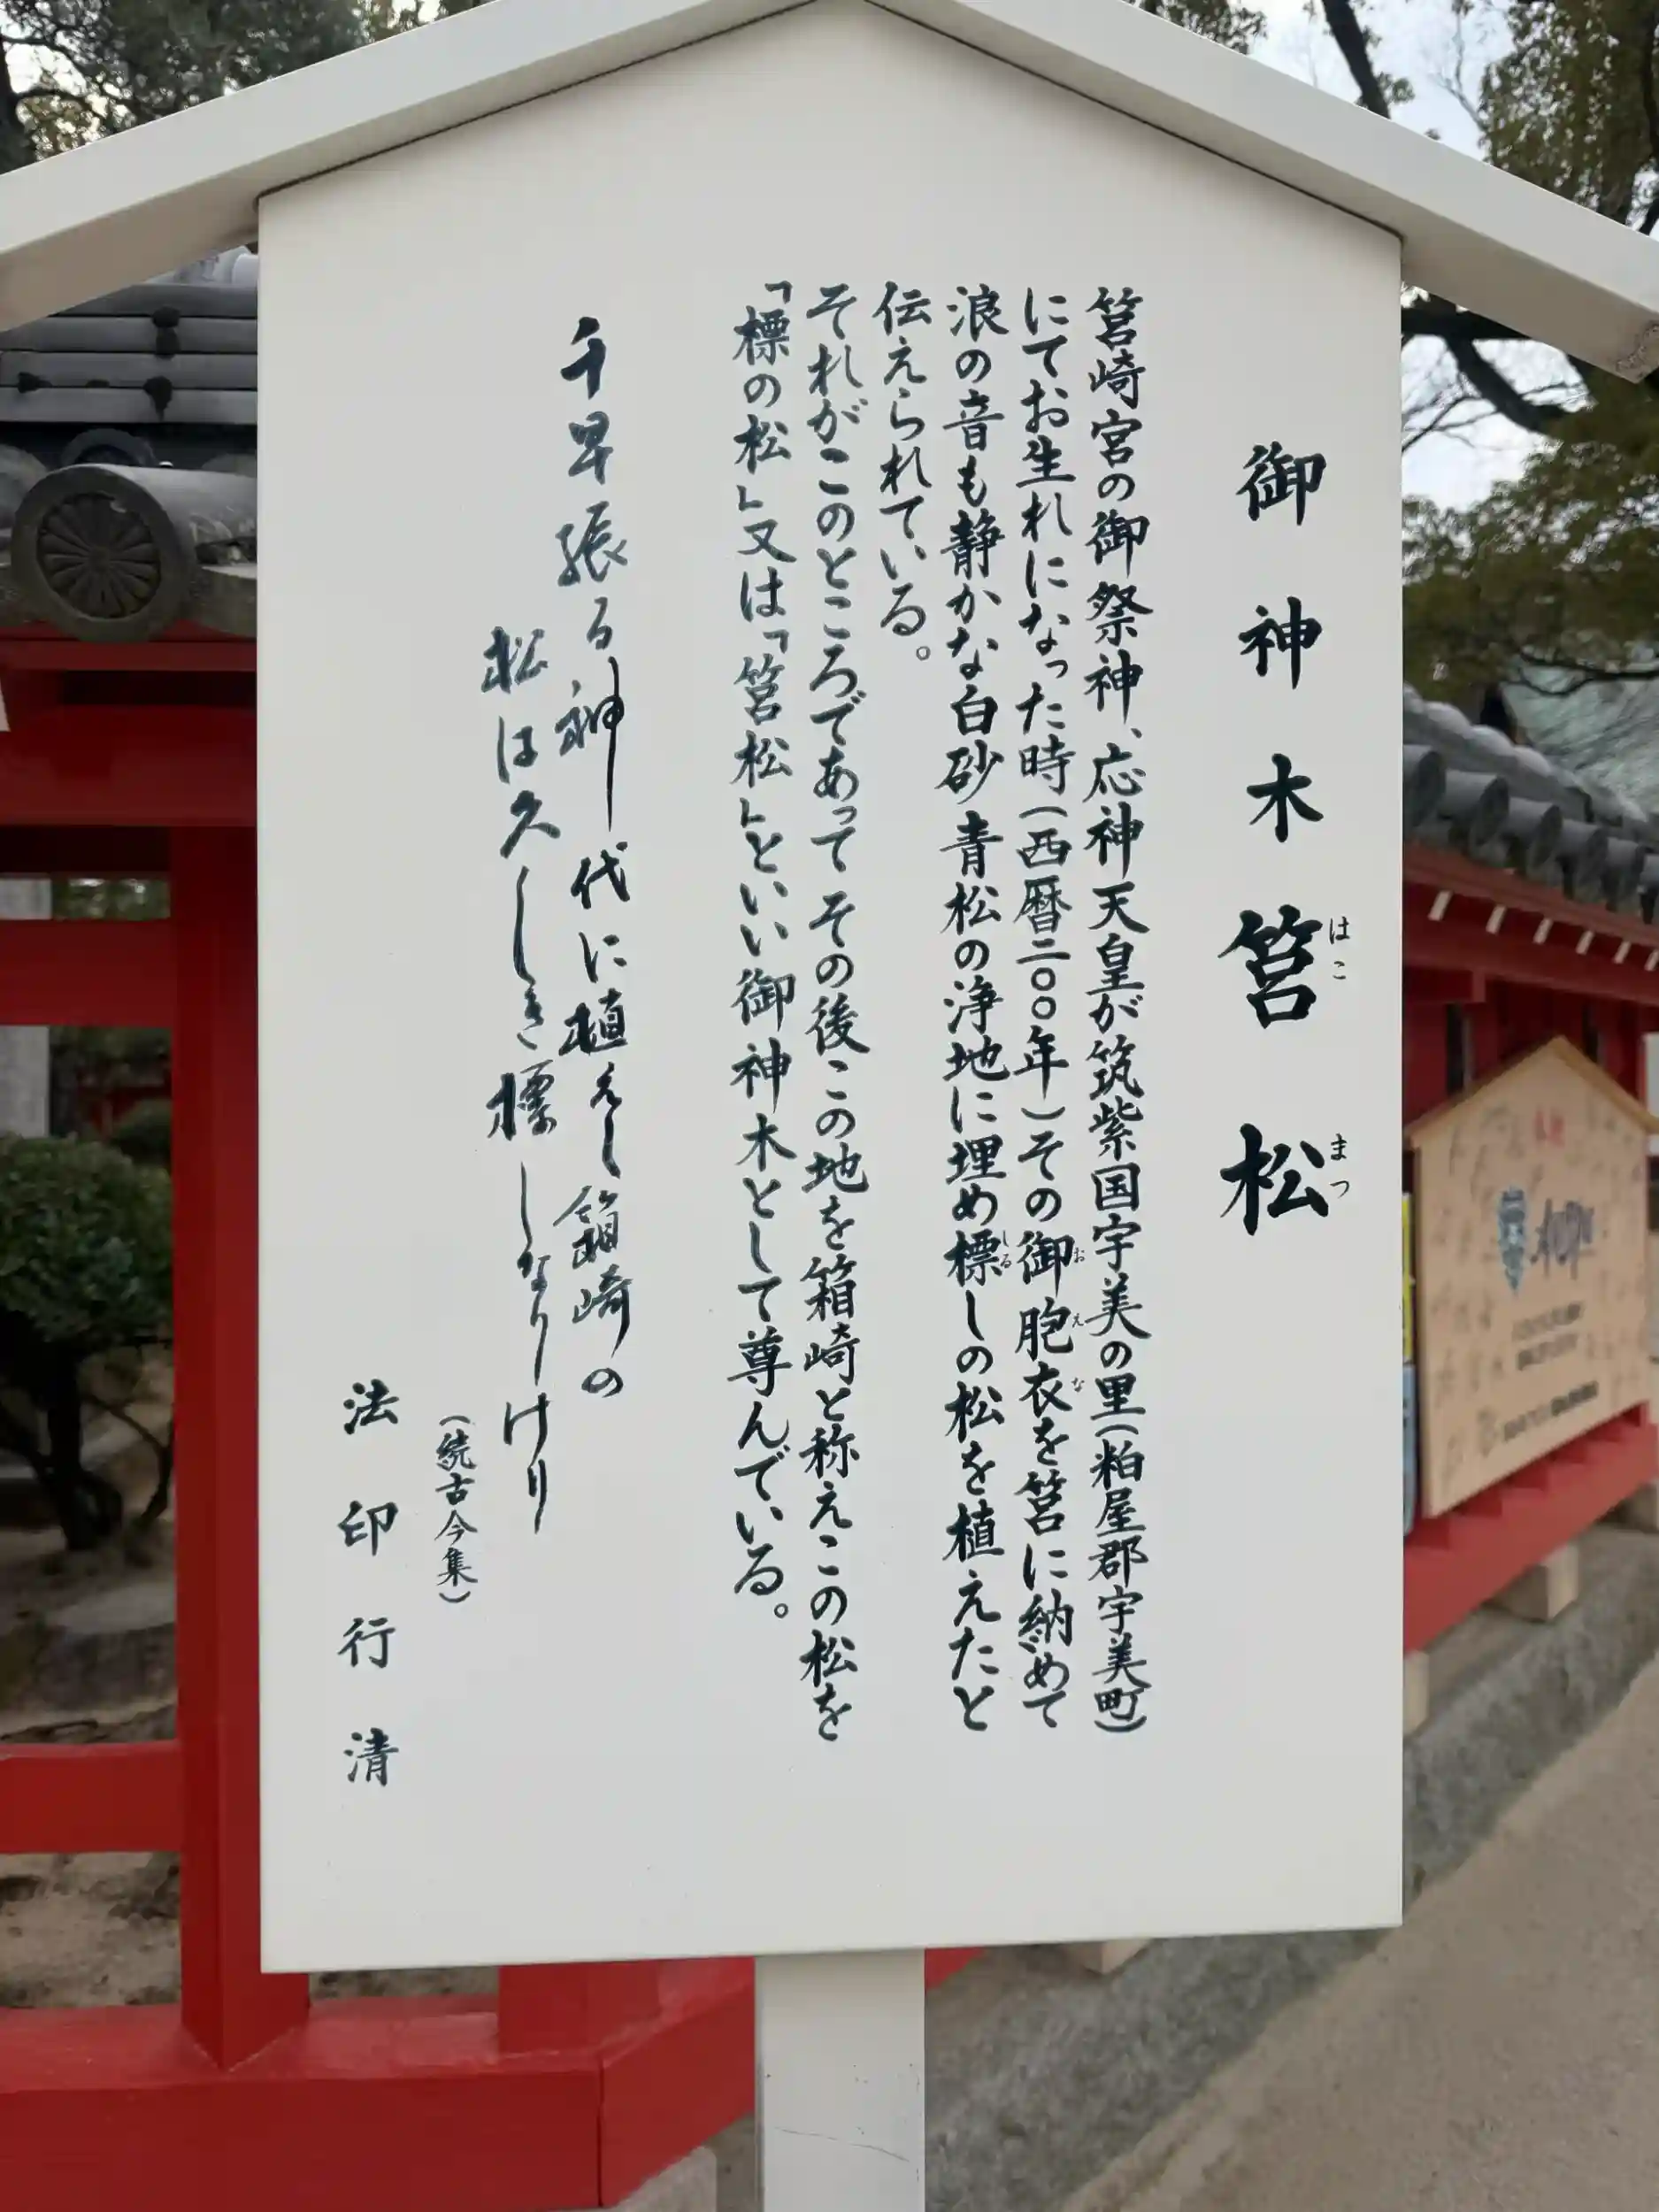 御神木 筥松
はこ まつ
筥崎宮の御祭神、応神天皇が筑紫国宇美の里(粕屋郡宇美町)
にてお生れになった時(西暦二〇〇年)その御胞衣を筥に納めて
おえな
浪の音も静かな白砂青松の浄地に埋め標しの松を植えたと
しる
伝えられている。
それがこのところであって その後この地を箱崎と称えこの松を
「標の松」又は「筥松」といい御神木として尊んでいる。
千早振る神代に植えし箱崎の
松は久しき標しなりけり
(続古今集)
法印行清